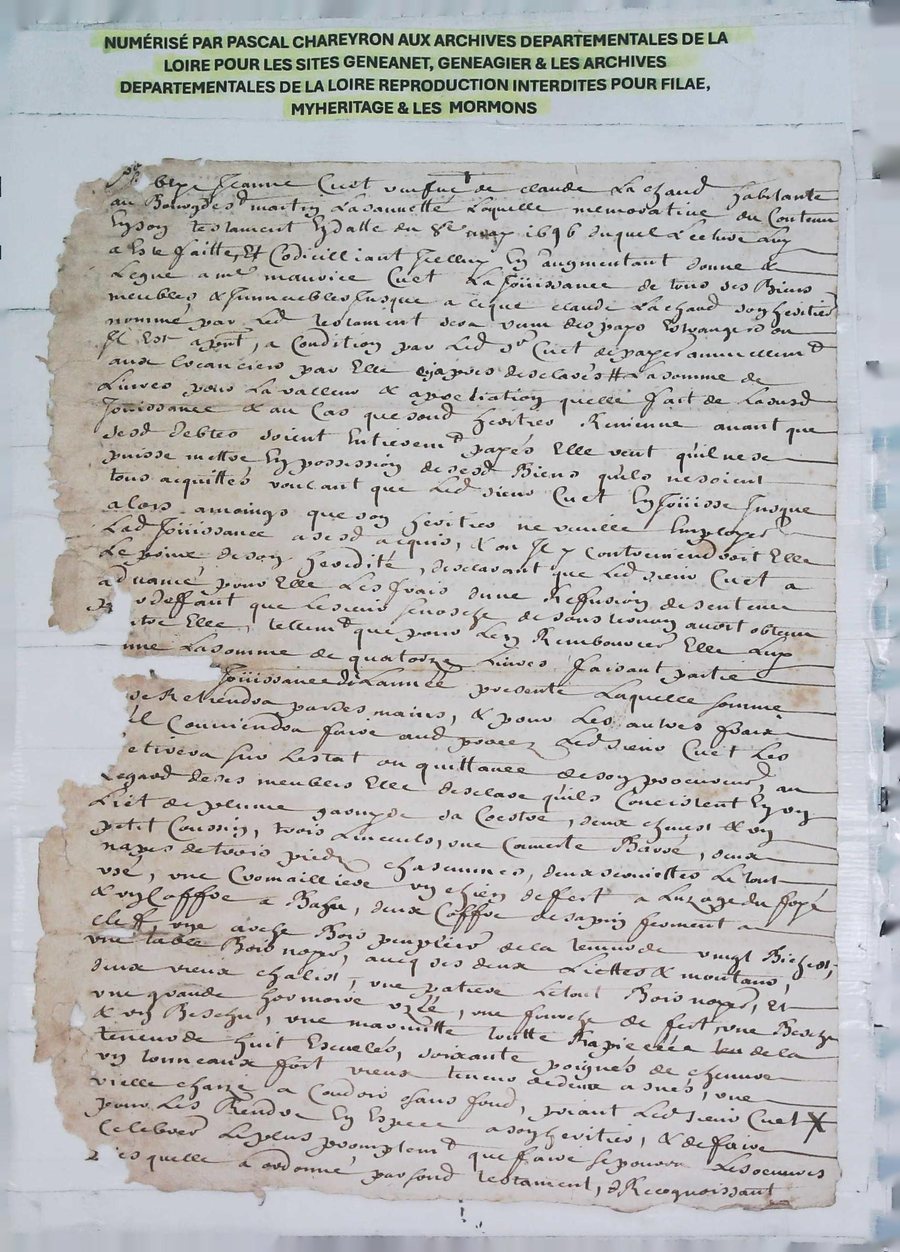 NUMÉRISÉ PAR PASCAL CHAREYRON AUX ARCHIVES DEPARTEMENTALES DE LA
LOIRE POUR LES SITES GENEANET, GENEAGIER & LES ARCHIVES
DEPARTEMENTALES DE LA LOIRE REPRODUCTION INTERDITES POUR FILAE,
MYHERITAGE & LES MORMONS
Jeanne Cuet veufue de claude La chaud habitante
au Bourg de st martin Lasauuetté Laquelle memorative du Contenu
En son testament En datte du may 1696 duquel Lecture
a Este faitte, Et Codicilliant Icelluy En augmentant donne &
Legue a me maurice Cuet La Joüissance de tous ses Biens
meubles & Immeubles Jusque a ce que claude La chaud son heritier
nommé par Led testament sera venu des pays Estrangers ou
Il Est apnt, a Condition par Led sr Cuet de payer annuellemt
aux creanciers par Elle cy apres desclarés # La somme de
Liures pour La valleur & apretiation quelle fait de Lad
Joüissance & au Cas que sond heritier Reuienne auant que
sesd debtes soient Entieremt payés Elle veut quil ne se
puisse mettre En possession de sesd Biens quils ne soient
tous acquittés voulant que Led sieur Cuet En Joüisse Jusque
alors amoings que son heritier ne veuille Employer
Lad Joüissance a sesd acquis, & ou Il y Contreuiendroit Elle
Le priue de son heredité, desclarant que Led sieur Cuet a
aduancé pour Elle Les frais dune Refusion de sentence
deffaut que Le sieur de auoit obtenu
Elle, tellemt que pour Len Rembourcer Elle Luy
La somme de quatorze Liures faisant partie
Joüissance de Lannée presente Laquelle somme
se Retiendra par ses mains, & pour Les autres frais
Il Conuiendra faire aud procez Led sieur Cuet Les
retirera sur Lestat ou quittance de son procureur, au
Legard de ses meubles Elle desclare quils Concistent En un
Lict de plume garny de sa Coestre, deux & un
petit Coussin, trois Linceuls, une Couuerte Barré, deux
napes de trois pieds chascunnes, deux seruiettes Le tout
usé, une Cromailliere un chien de fert a Luzage du foyé
& un Coffre a Bahu, deux Coffre de sapin ferment a
cleff une arche Bois peuplier de la teneur de vingt Bichest,
une table Bois noyer, auec ses deux Liettes & montans,
deux vieux chalist, une patiere Le tout Bois noyer, Et
une grande hormoire uzée, une fourche de fert, une Besche
& un Beschu, une marmitte toutte Rapiecéé de La
teneur de huit Escuelés, soixante poignés de chenure
un tonneaux fort vieux teneur de deux asnés, une
vielle chaze a Coudoir sans fond, priant Led sieur Cuet X
pour Les Rendre En Espece a son heritier, & de faire
Celebrer Le plus promptemt que faire se pourra Les oeuures
quelle a ordonné par sond testament, & Recognoissant